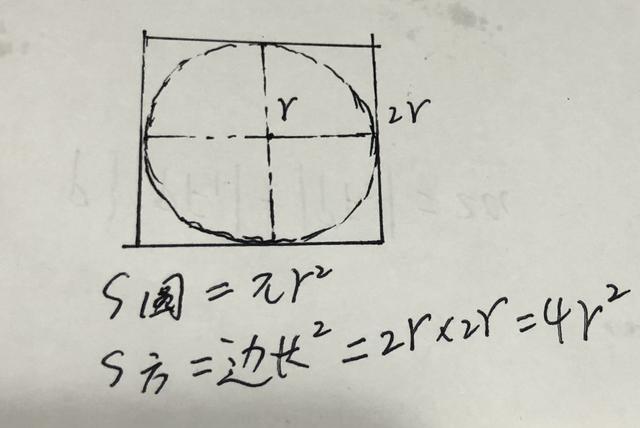 r
2r
S圆=πr²
S方=边长²=2r×2r=4r²